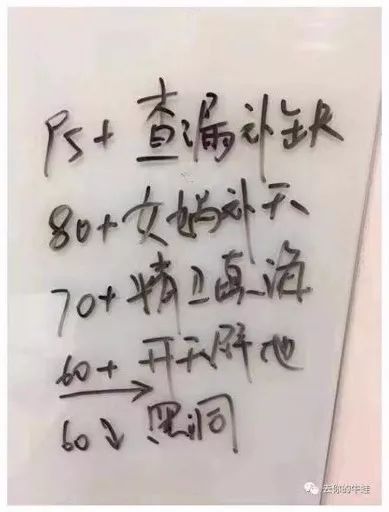 95+ 查漏补缺
80+ 女娲补天
70+ 精卫填海
60+ 开天辟地
60↓ 黑洞
去你的牛蛙